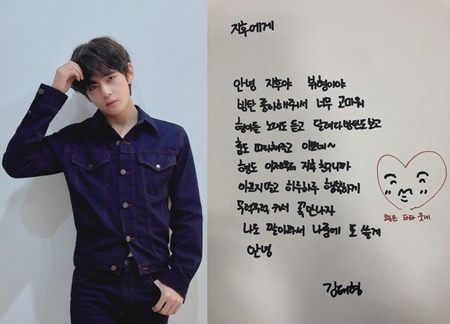 지후에게
안녕 지후야 뷔형이야
방탄 좋아해줘서 너무 고마워
형아들 노래도 듣고 달려라방탄도보고
춤도 따라해주고 이쁘네~
형도 이제부터 지후 친구니까
아프지말고 하루하루 행복하게
무럭무럭 커서 꼭 만나자
나도 팔이아파서 나중에 또 쓸게
안녕
김태형